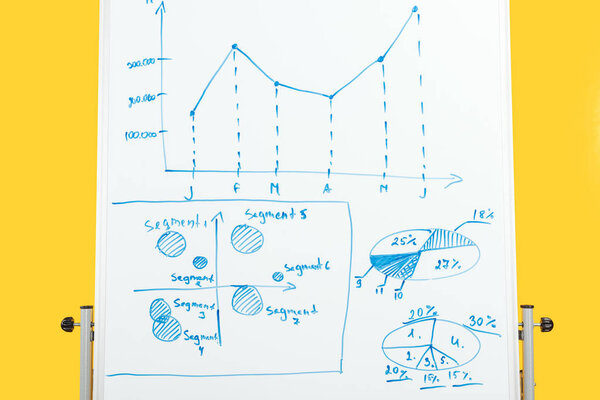 300.000
200.000
100.000
J F M A M J
Segment 1
Segment 5
Segment 2
Segment 6
Segment 3
Segment 4
Segment 7
18%
25%
27%
9
11
10
20%
30%
1.
4.
2.
3.
5.
20%
15%
15%